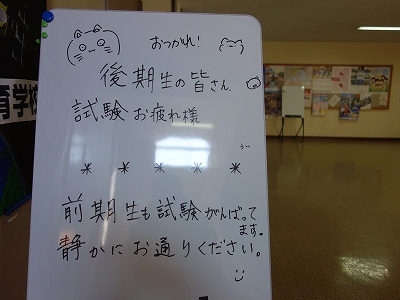 おつかれ!
後期生の皆さん
試験お疲れ様
* * * * *
前期生も試験がんばって
ます。
静かにお通りください。
育学校